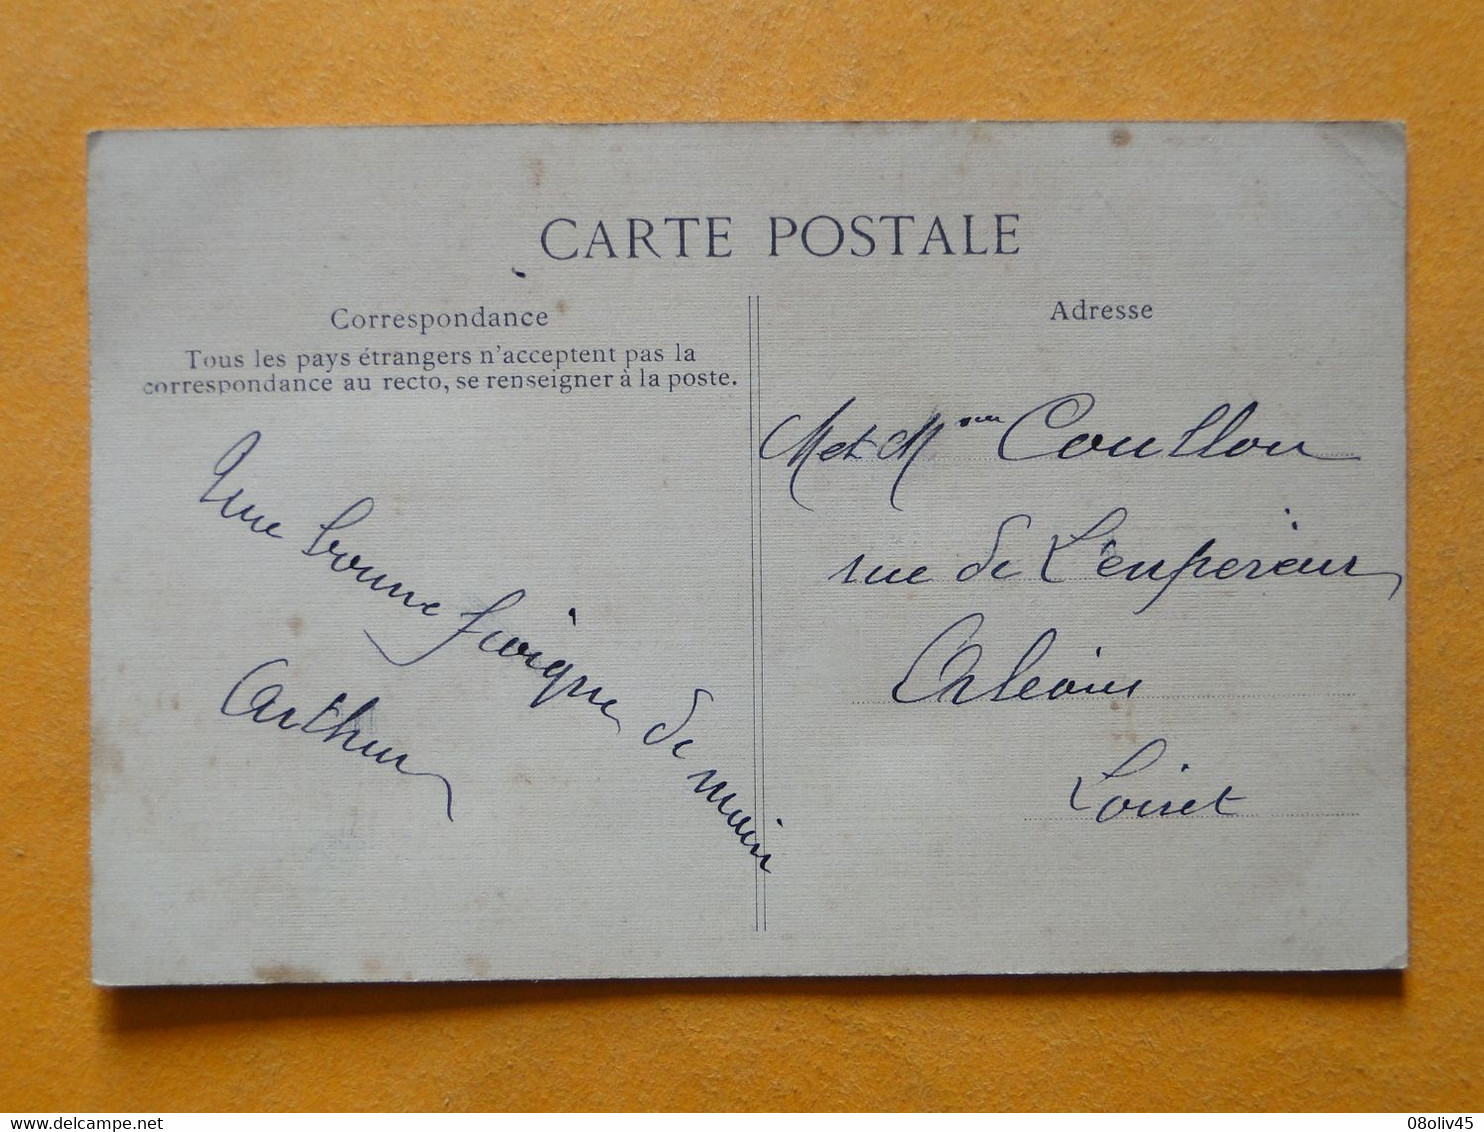 CARTE POSTALE
Correspondance
Tous les pays étrangers n'acceptent pas la
correspondance au recto, se renseigner à la poste.
Une bonne poigne de main
Arthur
Adresse
M et Mme Coullon
rue de L'empereur
Orléans
Loiret
delcampe.net
08oliv45